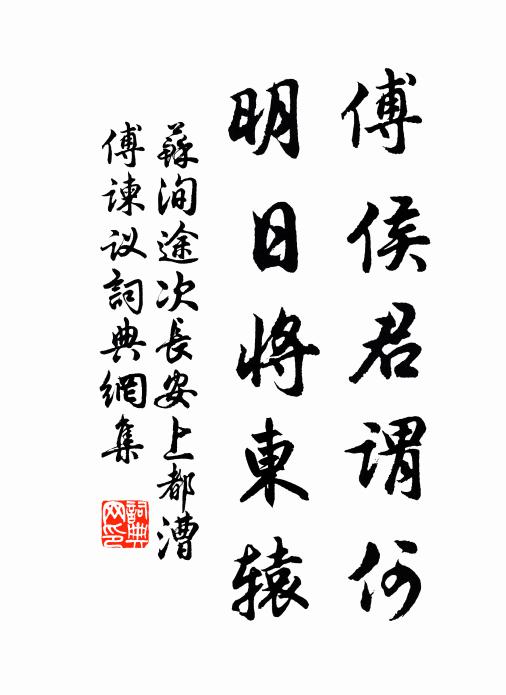 傅侯君谓何
明日将東辕
蘇洵途次長安上都漕
傅谏议詞典網集
詞典网印